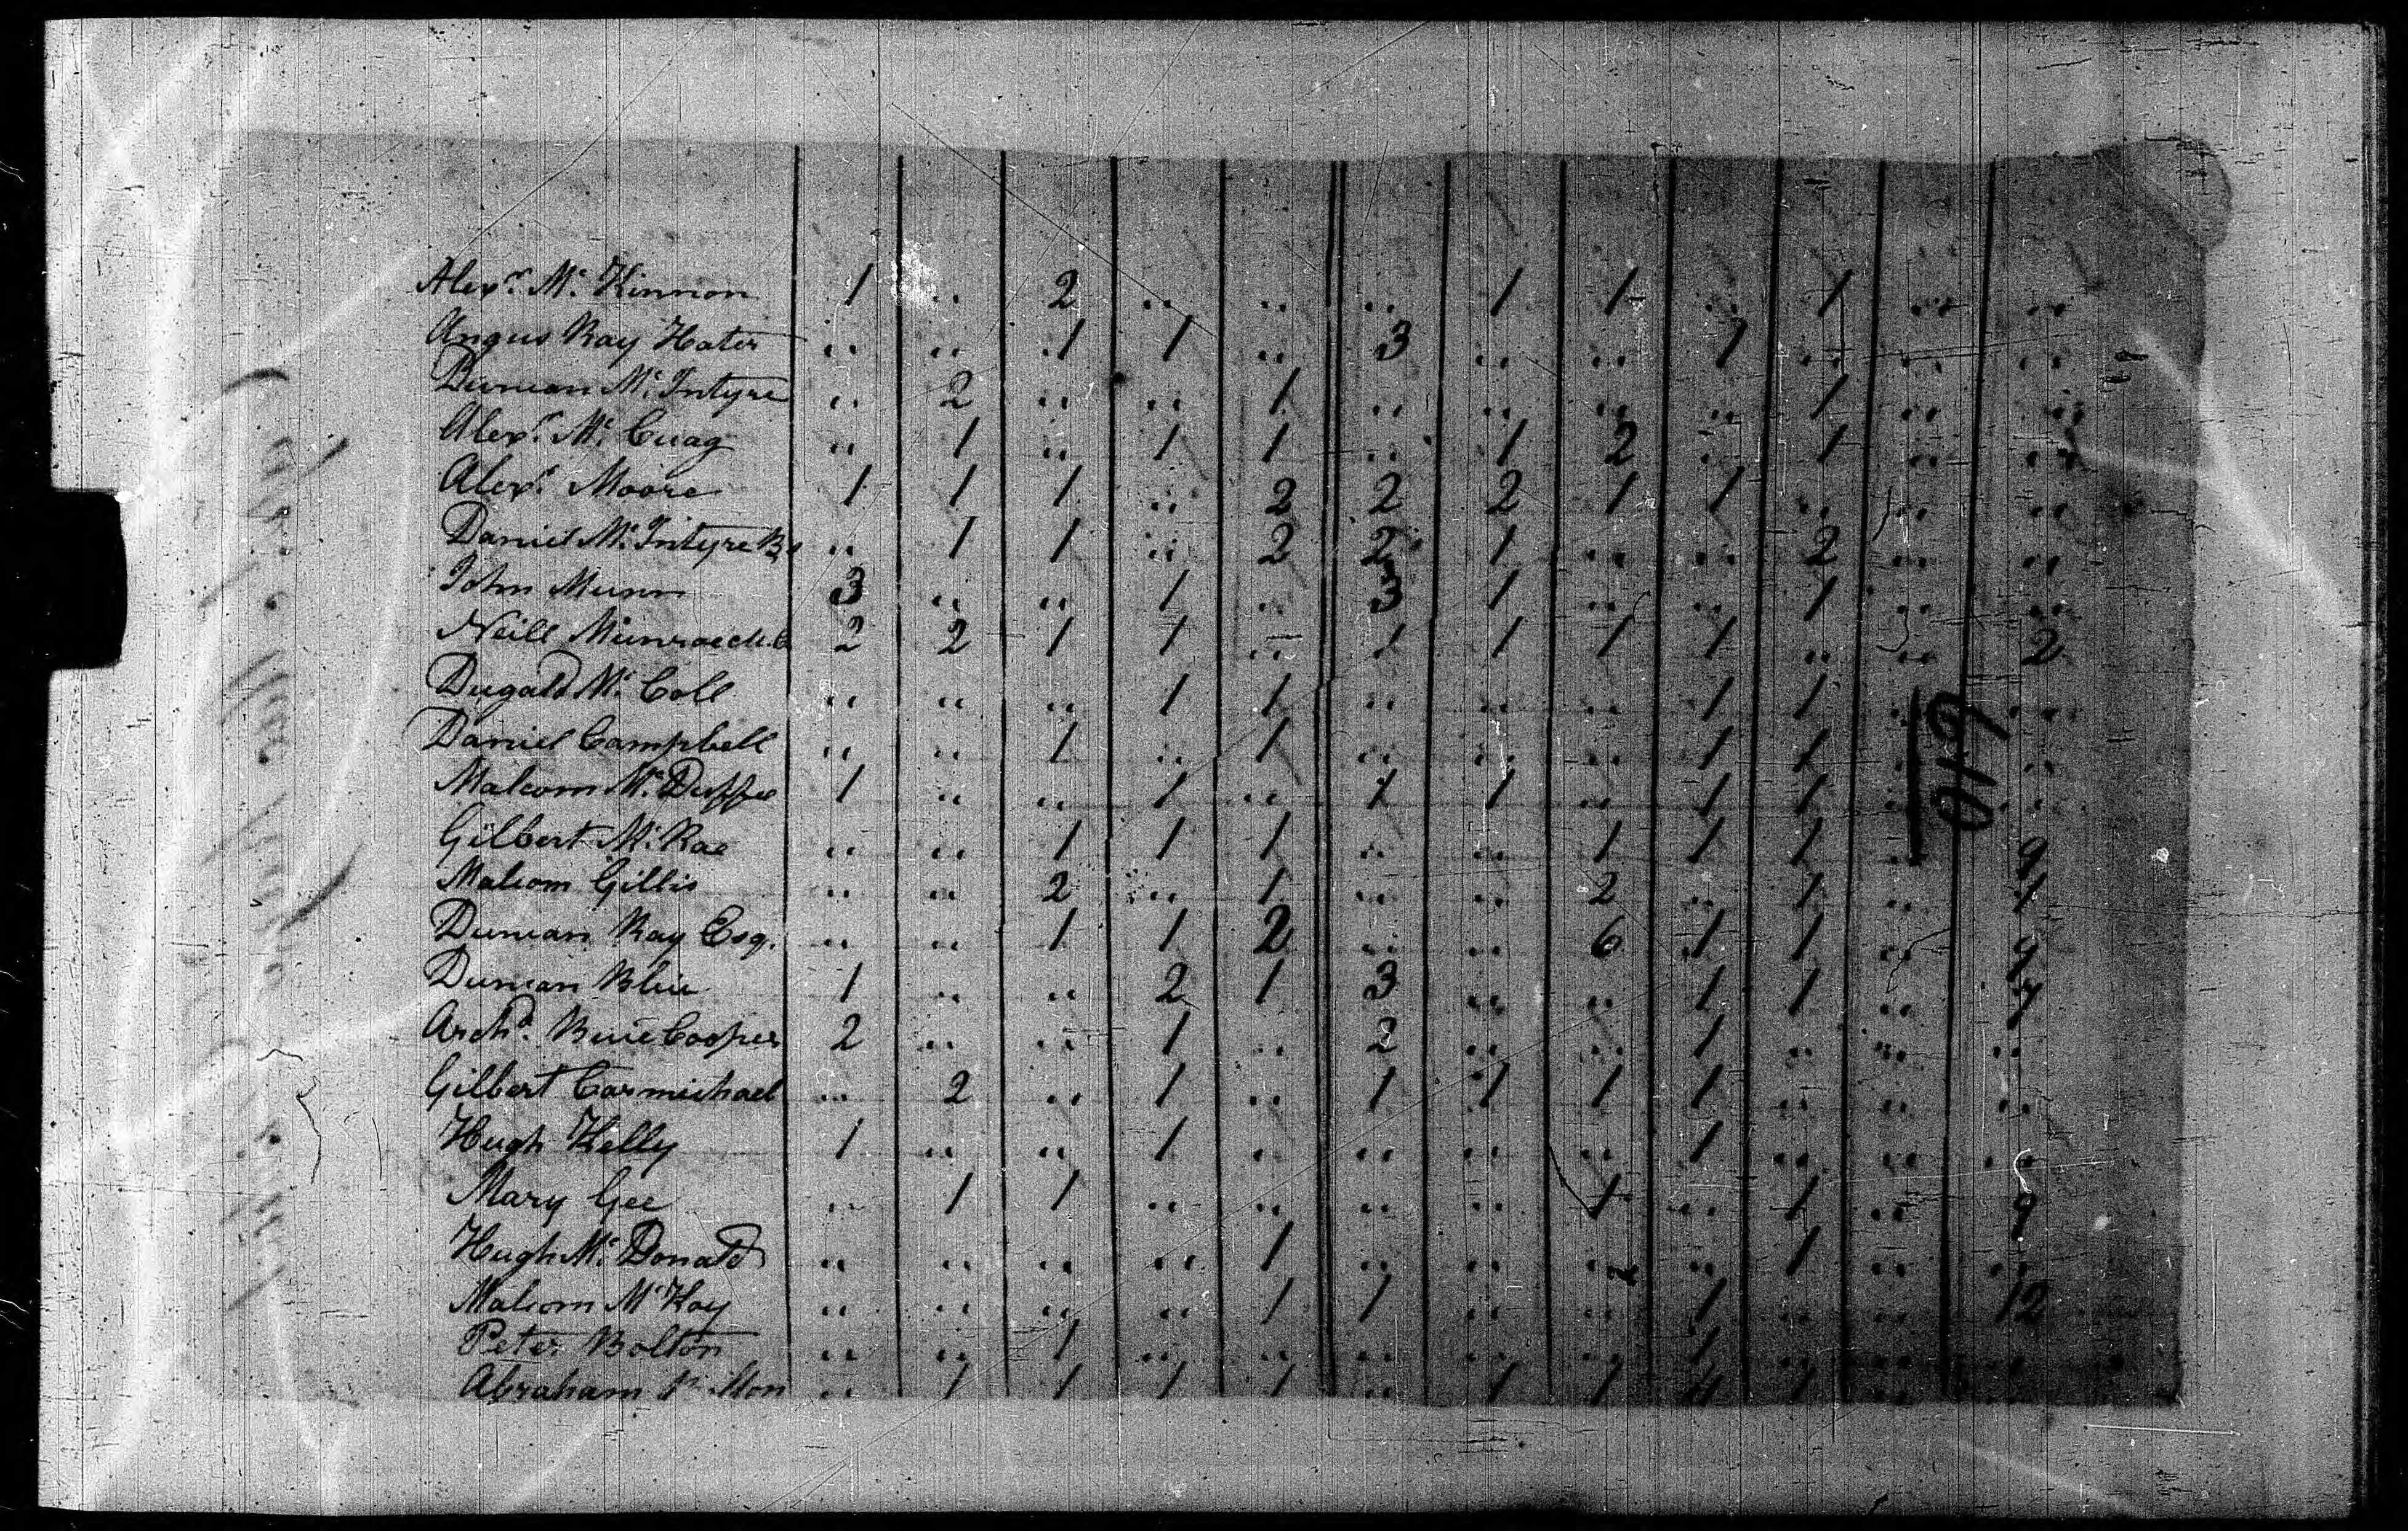 Alexr. Mc. Kinnon 1 .. 2 .. .. .. 1 1 .. 1 .. ..
Angus Ray Hater .. .. 1 1 .. 3 .. .. 1 .. .. ..
Duncan Mc. Intyre .. 2 .. .. 1 .. .. .. .. 1 .. ..
Alexr. Mc. Cuag .. 1 .. 1 1 .. 1 2 .. 1 .. ..
Alexr. Moore 1 1 1 .. 2 2 2 1 1 .. .. ..
Daniel Mc. Intyre .. 1 1 .. 2 2 1 .. .. 2 .. ..
John Munn 3 .. .. 1 .. 3 1 .. .. 1 .. ..
Neill 2 2 1 1 .. 1 1 1 1 .. .. 2
Dugald Mc. Coll .. .. .. 1 1 .. .. .. 1 1 .. ..
Daniel Campbell .. .. 1 .. 1 .. .. .. 1 1 .. ..
Malcom Mc. Duffee 1 .. .. 1 .. 1 1 .. 1 1 .. ..
Gilbert Mc. Rae .. .. 1 1 1 .. .. 1 1 1 .. 9
Malcom Gillis .. .. 2 .. 1 .. .. 2 .. 1 .. 1
Duncan Ray Esq. .. .. 1 1 2 .. .. 6 1 1 .. 9
Duncan Blue 1 .. .. 2 1 3 .. .. 1 1 .. 7
Archd. Buie Cooper 2 .. .. 1 .. 2 .. .. 1 .. .. ..
Gilbert Carmichael .. 2 .. 1 .. 1 1 1 1 .. .. ..
Hugh Kelly 1 .. .. 1 .. .. .. .. 1 .. .. ..
Mary Gee .. 1 1 .. .. .. .. 1 .. 1 .. 9
Hugh Mc. Donald .. .. .. .. 1 .. .. .. .. 1 .. ..
Malcom Mc. Kay .. .. .. .. 1 1 .. .. 1 .. .. 12
Peter Bolton .. .. 1 .. .. .. .. .. 1 .. .. ..
Abraham .. 1 1 1 1 .. 1 1 1 1 ..